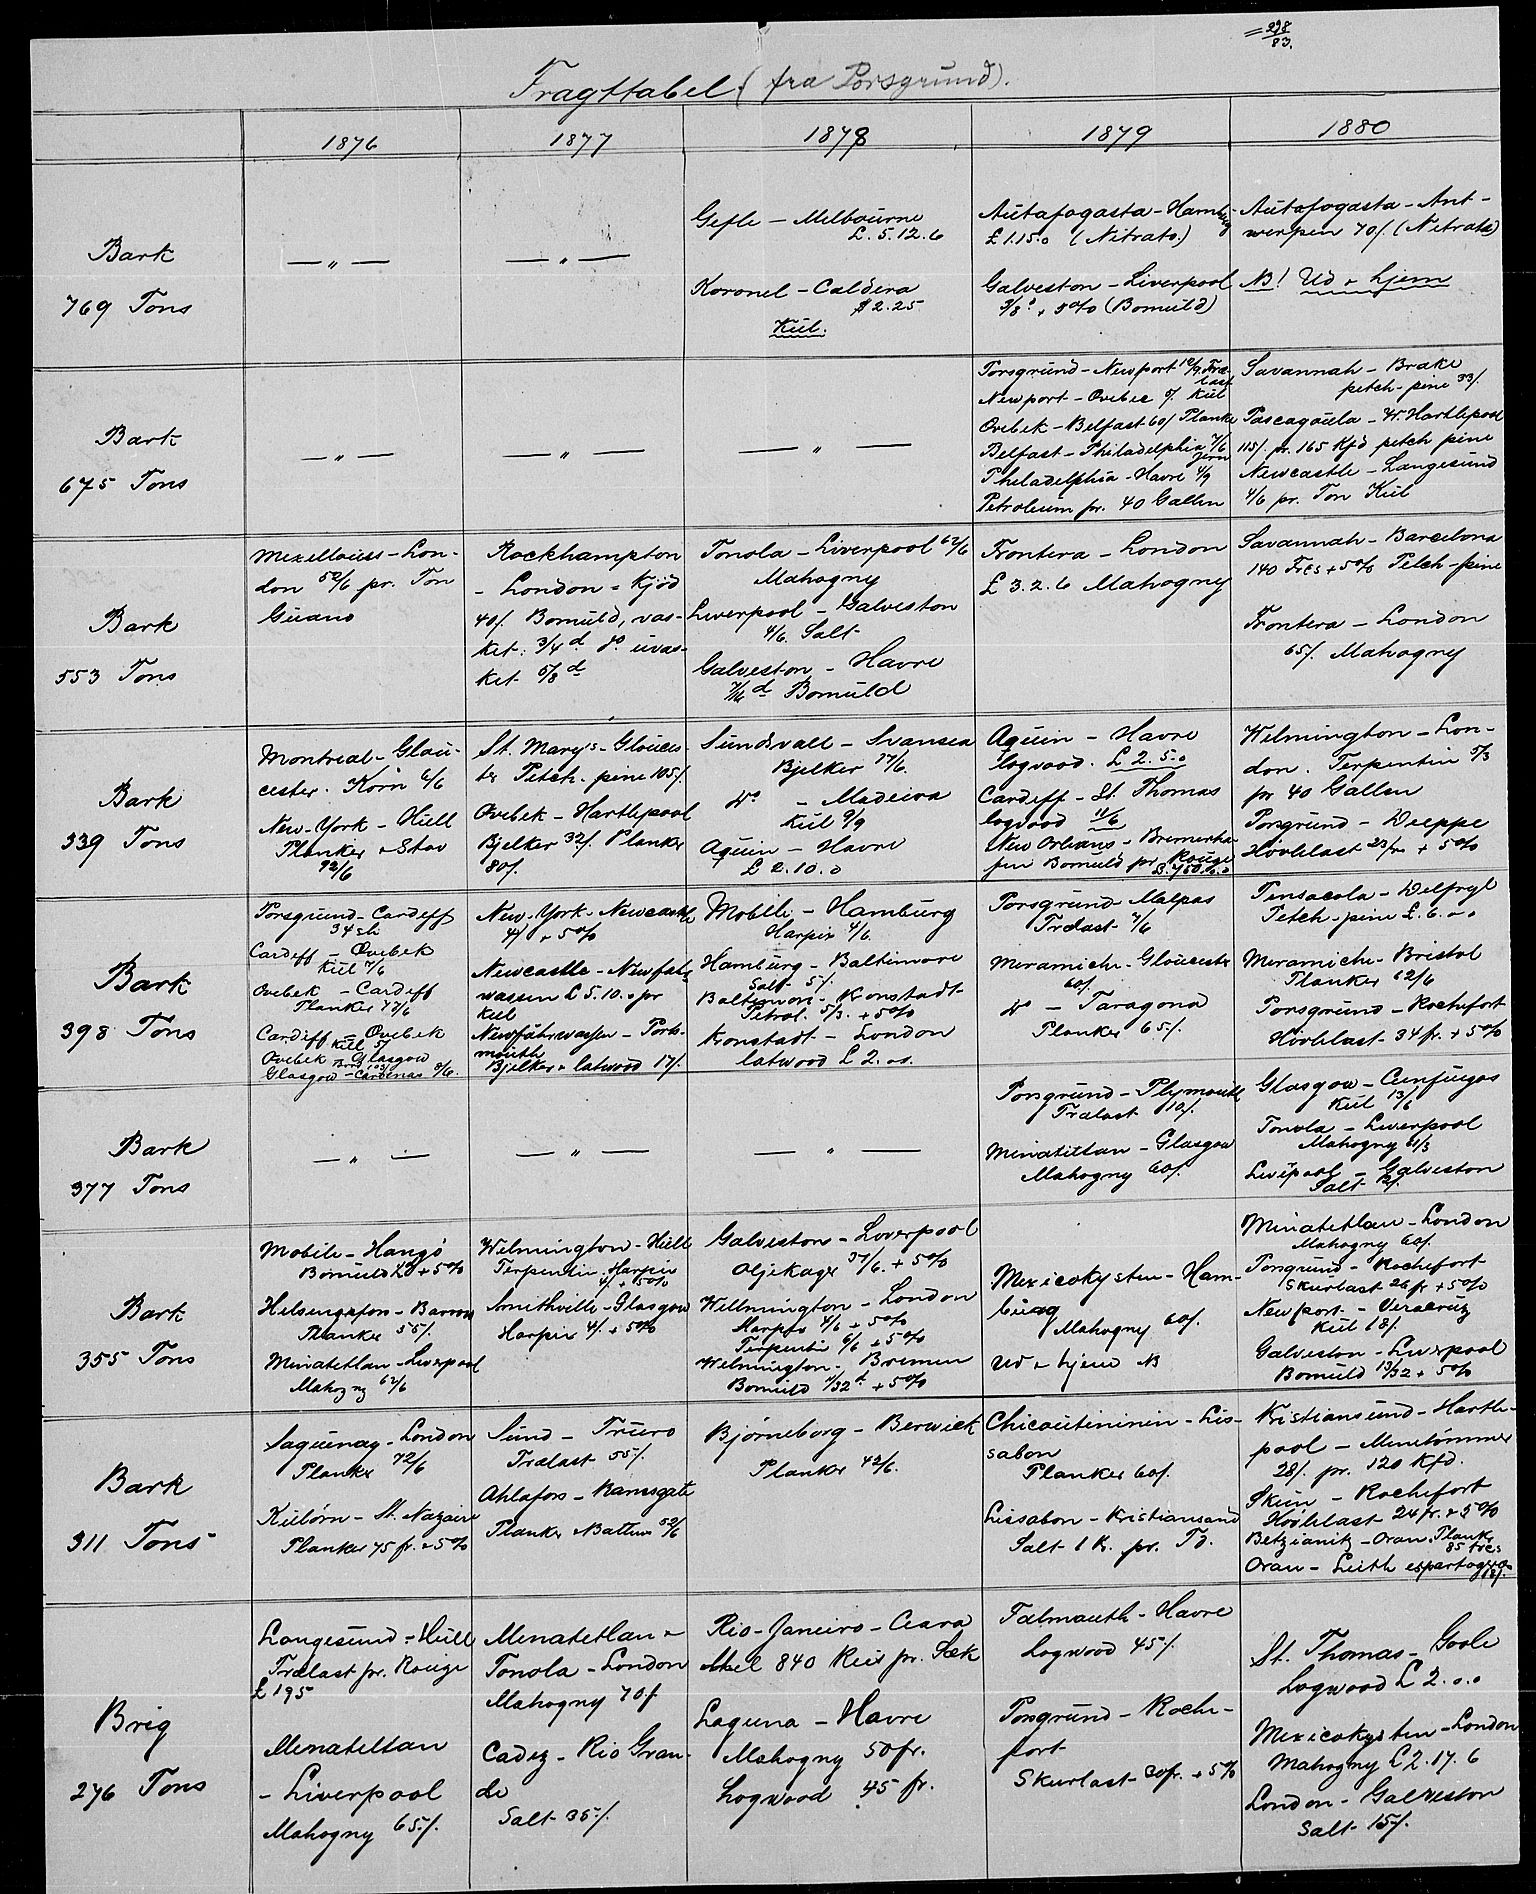 = 298/83.
Fragttabel (fra Porsgrund).
1876 1877 1878 1879 1880
Bark
769 Tons
— " —
— " —
Gefle - Melbourne
£. 5.12.6
Koronel - Caldera
$ 2.25
Kul.
Autafogasta - Hamburg
£ 1.15.0 (Nitrato.)
Galveston - Liverpool
+ 5% (Bomuld)
Autafogasta - Ant-
werpen 70/. (Nitrato)
NB! Ud & hjem
Bark
675 Tons
— " —
— " —
— " —
Porsgrund - Newport Træ-
last
Newport - Qvebec Kul
Qvebek - Belfast 60/ Planke
Belfast - Philadelphia 7/6
Jern
Philadelphia - Havre 4/9
Petroleum pr. 40 Gallen
Savannah - Brake
petch-pine 33/.
Pascagoula - W. Hartlepool
115/. pr. 165 Kfd petch pine
Newcastle - Langesund
4/6 pr. Ton Kul
Bark
553 Tons
Mexellouis - Lon-
don 52/6 pr. Ton
Guano
Rockhampton
- London - Kjöd
40/. Bomuld, vas-
ket: 3/4 d do uvas-
ket 5/8 d
Tonola - Liverpool 62/6
Mahogny
Liverpool - Galveston
4/6. Salt
Galveston - Havre
7/16 d Bomuld
Frontera - London
£ 3.2.6 Mahogny
Savannah - Barcelona
140 Frcs + 5% Petch-pine
Frontera - London
65/. Mahogny
Bark
339 Tons
Montreal - Glou-
cester. Korn 6/6
New-York - Hull
Planker & Stav
92/6
St. Mary's - Glouces-
ter Petch-pine 105/.
Qvebek - Hartlepool
Bjelker 32/. Planker
80/.
Sundsvall - Svansea
Bjelker 17/6.
do - Madeira
Kul 9/9
Aquin - Havre
£ 2.10.0
Aquin - Havre
logwood. £ 2.5.0
Cardiff - St. Thomas
logwood 11/6
New Orleans - Bremerha-
fen Bomuld pr. Rouge
£. 750.0.0
Wilmington - Lon-
don. Terpentin 5/3
pr 40 Gallen
Porsgrund - Dieppe
Hövllast 23/fr + 5%
Bark
398 Tons
Porsgrund - Cardiff
34 sh
Cardiff - Qvebek
Kul 7/6
Qvebek - Cardiff
Planker 77/6
Cardiff - Qvebek
Kul 5/
Qvebek - Glasgow
Glasgow - Cardenas 9/6.
New-York - Newcastle
4/ + 5%
Newcastle - Newfahr
wassen £ 5.10.0 pr
kiel
Newfahrwasser - Ports-
mouth
Bjelker & latwood 17/.
Mobile - Hamburg
Harpix 4/6.
Hamburg - Baltimore
Salt 5/.
Baltimore - Kronstadt
Petrol. 5/3. + 5%
Kronstadt - London
latwood £ 2.0.0.
Porsgrund - Malpas
Trælast 7/6
Meramichi - Gloucester
60/.
do - Taragona
Planker 65/.
Pensacola - Delfzyl
Petch-pine £. 6.0.0
Meramichi - Bristol
Planker 62/6
Porsgrund - Rochefort
Hövllast 34 fr. + 5%
Bark
377 Tons
— " —
— " —
— " —
Porsgrund - Plymouth
Trælast 10/.
Minatitlan - Glasgow
Mahogny 60/.
Glasgow - Cienfuegos
Kul 13/6
Tonola - Liverpool
Mahogny 61/3
Liverpool - Galveston
Salt
Bark
355 Tons
Mobile - Hangö
Bomuld + 5%
Helsingsfors - Barrow
Planker 55/.
Minatetlan - Liverpool
Mahogny 62/6
Wilmington - Hull
Terpentin Harpix
4/ + 5%
Smithville - Glasgow
Harpix 4/. + 5%
Galveston - Liverpool
Oljekager 37/6. + 5%
Willmington - London
Harpix 4/6 + 5%
Terpentin 6/6 + 5%
Wilmington - Bremen
Bomuld 11/32 d + 5%
Mexicokysten - Ham-
burg
Mahogny 60/.
Ud & hjem NB
Minatetlan - London
Mahogny 60/.
Porsgrund - Rochefort
Skurlast 26 fr + 5%
Newport - Veracruz
Kul 18/.
Galveston - Liverpool
Bomuld 13/32 + 5%
Bark
311 Tons
Saguenay - London
Planker 72/6
Kulörn - St. Nazaire
Planker 75 fr. + 5%
Sund - Truro
Trælast 55/.
Ahlafors - Ramsgate
Planker & Battens 52/6
Björneborg - Berwick
Planker 42/6.
Chicoutiminin - Lis-
sabon
Planker 60/.
Lissabon - Kristiansand
Salt 1 K. pr. Td.
Kristiansund - Hartle-
pool - Minetömmer
28/. pr. 120 Kfd.
Skien - Rochefort
Hövllast 24 fr. + 5%
Betzianitz - Oran Planker
85 frcs
Oran - Leith espartogræs
18/.
Brig
276 Tons
Langesund - Hull
Trælast pr. Rouge
£ 195
Menatetlan
- Liverpool
Mahogny 65/.
Menatetlan &
Tonola - London
Mahogny 70/.
Cadiz - Rio Gran-
de
Salt 35/.
Rio-Janeiro - Ceara
Mel 840 Reis pr. Sæk
Laguna - Havre
Mahogny 50 fr.
Logwood 45 fr.
Falmouth - Havre
Logwood 45/.
Porsgrund - Roche-
fort
Skurlast 30 fr. + 5%
St. Thomas - Goole
Logwood £ 2.0.0
Mexicokysten - London
Mahogny £ 2.17.6
London - Galveston
Salt 15/.